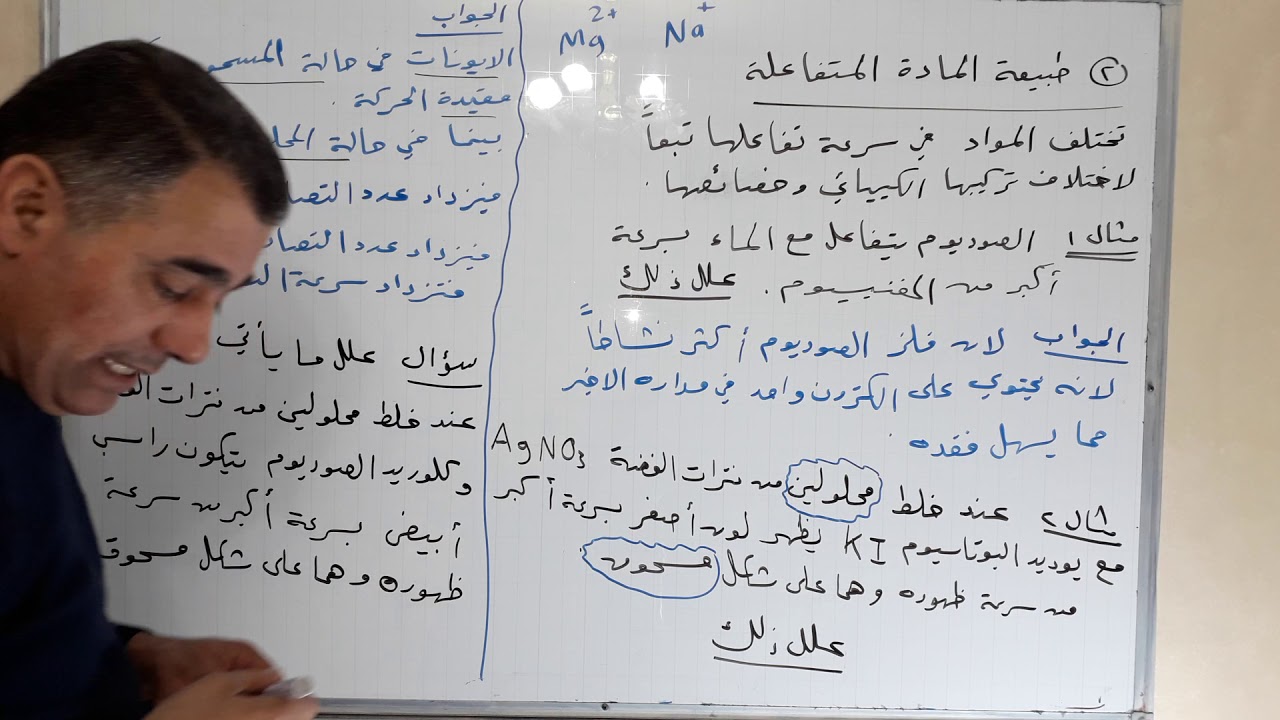 Mg2+ Na+
② طبيعة المادة المتفاعلة
تختلف المواد في سرعة تفاعلها تبعاً
لاختلاف تركيبها الكيميائي وخصائصها.
مثال ١ الصوديوم يتفاعل مع الماء بسرعة
أكبر من المغنيسيوم. علل ذلك
الجواب لان فلز الصوديوم أكثر نشاطاً
لانه يحتوي على الكترون واحد في مداره الاخير
مما يسهل فقده.
مثال ٢ عند خلط محلولين من نترات الفضة AgNO3
مع يوديد البوتاسيوم KI يظهر لون أصفر بسرعة أكبر
من سرعة ظهوره وهما على شكل مسحوق
علل ذلك
الجواب
الايونات في حالة
مقيدة الحركة.
بينما في حالة
فيزداد عدد
فيزداد عدد
فتزداد سرعة
سؤال علل ما يأتي
عند خلط محلولين من نترات
وكلوريد الصوديوم يتكون راسب
أبيض بسرعة أكبر من سرعة
ظهوره وهما على شكل مسحوق